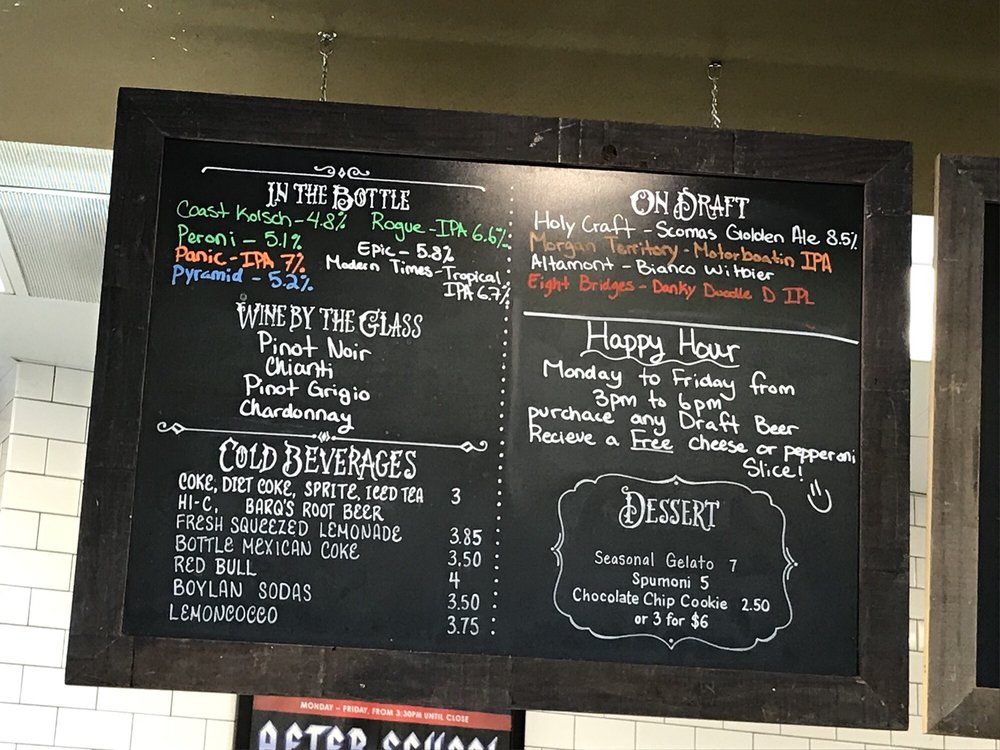 IN THE BOTTLE
Coast Kolsch - 4.8%
Peroni - 5.1%
Panic - IPA 7%
Pyramid - 5.2%
Rogue - IPA 6.6%
Epic - 5.8%
Modern Times - Tropical
IPA 6.7%
WINE BY THE GLASS
Pinot Noir
Chianti
Pinot Grigio
Chardonnay
COLD BEVERAGES
COKE, DIET COKE, SPRITE, ICED TEA 3
HI-C, BARQ'S ROOT BEER
FRESH SQUEEZED LEMONADE 3.85
BOTTLE MEXICAN COKE 3.50
RED BULL 4
BOYLAN SODAS 3.50
LEMONCOCCO 3.75
ON DRAFT
Holy Craft - Scomas Golden Ale 8.5%
Morgan Territory - Motorboatin IPA
Altamont - Bianco Witbier
Eight Bridges - Danky Doodle D IPL
Happy Hour
Monday to Friday from
3pm to 6pm
purchace any Draft Beer
Recieve a Free cheese or pepperoni
Slice!
DESSERT
Seasonal Gelato 7
Spumoni 5
Chocolate Chip Cookie 2.50
or 3 for $6
MONDAY – FRIDAY, FROM 3:30PM UNTIL CLOSE
AFTER SCHOOL